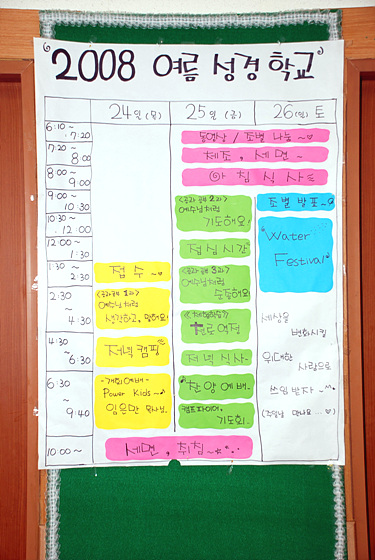 "2008 여름 성경학교"
24일(목) 25일(금) 26(일) 토
6:10~
7:20
동영상 / 조별 나눔~♡
7:20
~ 8:00
체조, 세면~
8:00
~ 9:00
아침식사
9:00
~ 10:30
<공과공부 2과>
예수님처럼
기도해요!
조별 발표~
10:30
~ 12:00
"Water
Festival"
12:00
~ 1:30
점심시간
1:30
~ 2:30
접수~
3과>
예수님처럼
순종해요!
2:30
~ 4:30
1과>
예수님처럼
생각하고, 말해요!
<체험학습>
천로역정
세상을
변화시킬
4:30
~ 6:30
저녁 캠핑
저녁식사
위대한
사람으로
6:30
~ 9:40
-개회예배-
Power Kids~
찬양예배.
캠프파이어,
기도회.
쓰임받자~^^
10:00~
세면, 취침~